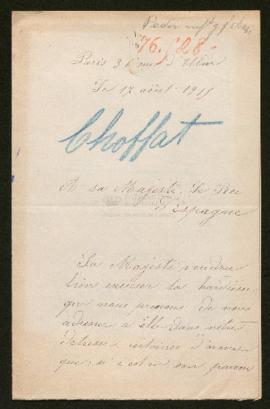 Pedir
76. / 28-
Paris 36 rue d'Ulm
Le 17 août 1915
Choffat
A sa Majesté Le Roi
d'Espagne
Sa Majesté voudra
bien excuser la hardiesse
que nous prenons de nous
adresser à elle dans notre
détresse, certaines d'avance
que